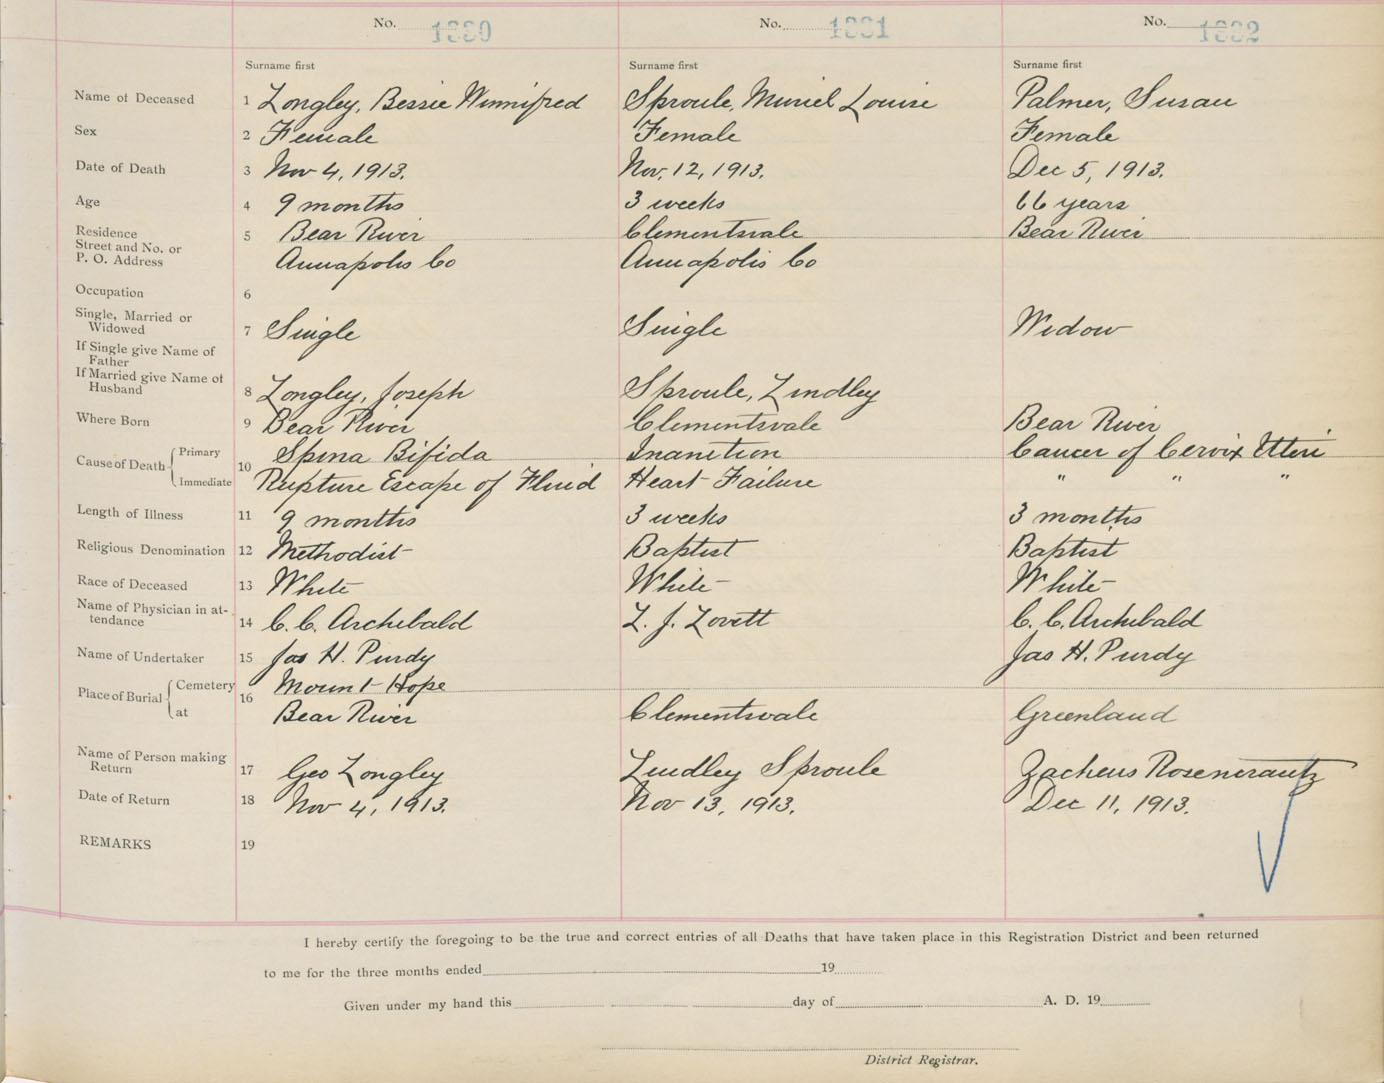 No. 1330 No. 1331 No. 1332
Surname first Surname first Surname first
Name of Deceased 1 Longley, Bessie Winnifred Sproule, Muriel Louise Palmer, Susan
Sex 2 Female Female Female
Date of Death 3 Nov 4, 1913. Nov. 12, 1913. Dec 5, 1913.
Age 4 9 months 3 weeks 66 years
Residence 5 Bear River Clementsvale Bear River
Street and No. or
P. O. Address Annapolis Co Annapolis Co
Occupation 6
Single, Married or
Widowed 7 Single Single Widow
If Single give Name of
Father
If Married give Name of
Husband 8 Longley, Joseph Sproule, Lindley
Where Born 9 Bear River Clementsvale Bear River
Cause of Death Primary 10 Spina Bifida Inanition Cancer of Cervix Uteri
Immediate Rupture Escape of Fluid Heart Failure " " "
Length of Illness 11 9 months 3 weeks 3 months
Religious Denomination 12 Methodist Baptist Baptist
Race of Deceased 13 White White White
Name of Physician in at-
tendance 14 C. C. Archibald L. J. Lovett C. C. Archibald
Name of Undertaker 15 Jas H. Purdy Jas H. Purdy
Place of Burial Cemetery 16 Mount Hope
at Bear River Clementsvale Greenland
Name of Person making
Return 17 Geo Longley Lindley Sproule Zacheus Rosencrantz
Date of Return 18 Nov 4, 1913. Nov 13, 1913. Dec 11, 1913.
REMARKS 19
I hereby certify the foregoing to be the true and correct entries of all Deaths that have taken place in this Registration District and been returned
to me for the three months ended 19
Given under my hand this day of A. D. 19
District Registrar.